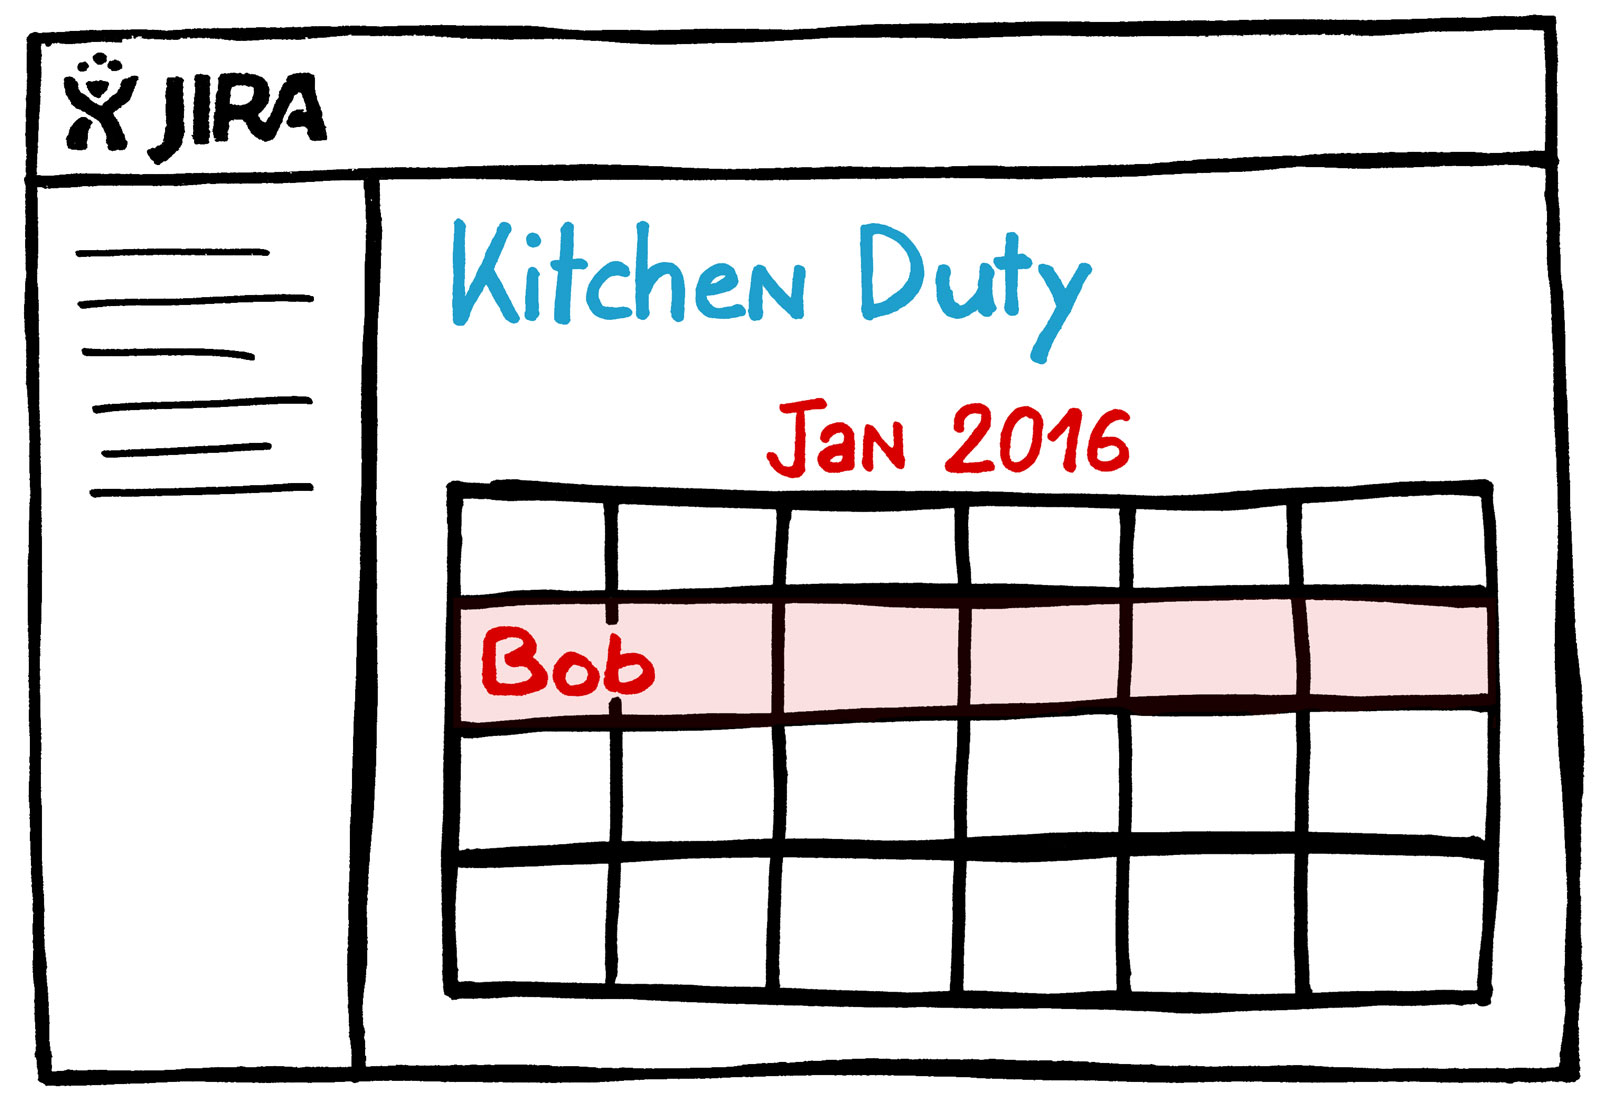 JIRA
Kitchen Duty
Jan 2016
Bob